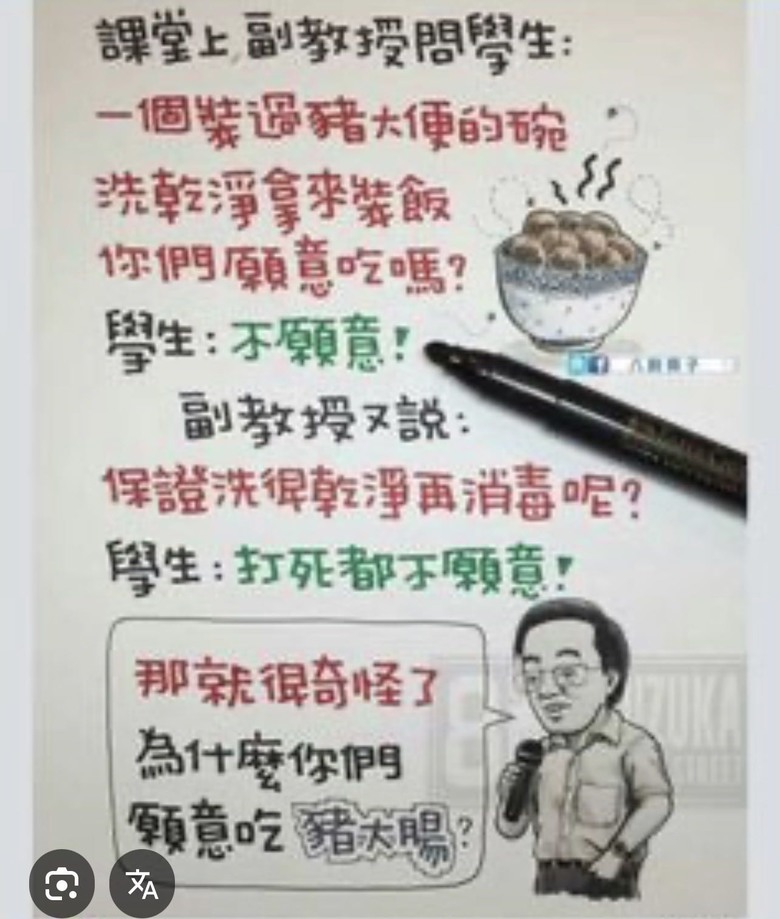 課堂上,副教授問學生:
一個裝過豬大便的碗
洗乾淨拿來裝飯
你們願意吃嗎?
學生:不願意!
副教授又說:
保證洗很乾淨再消毒呢?
學生:打死都不願意!
那就很奇怪了
為什麼你們
願意吃豬大腸?